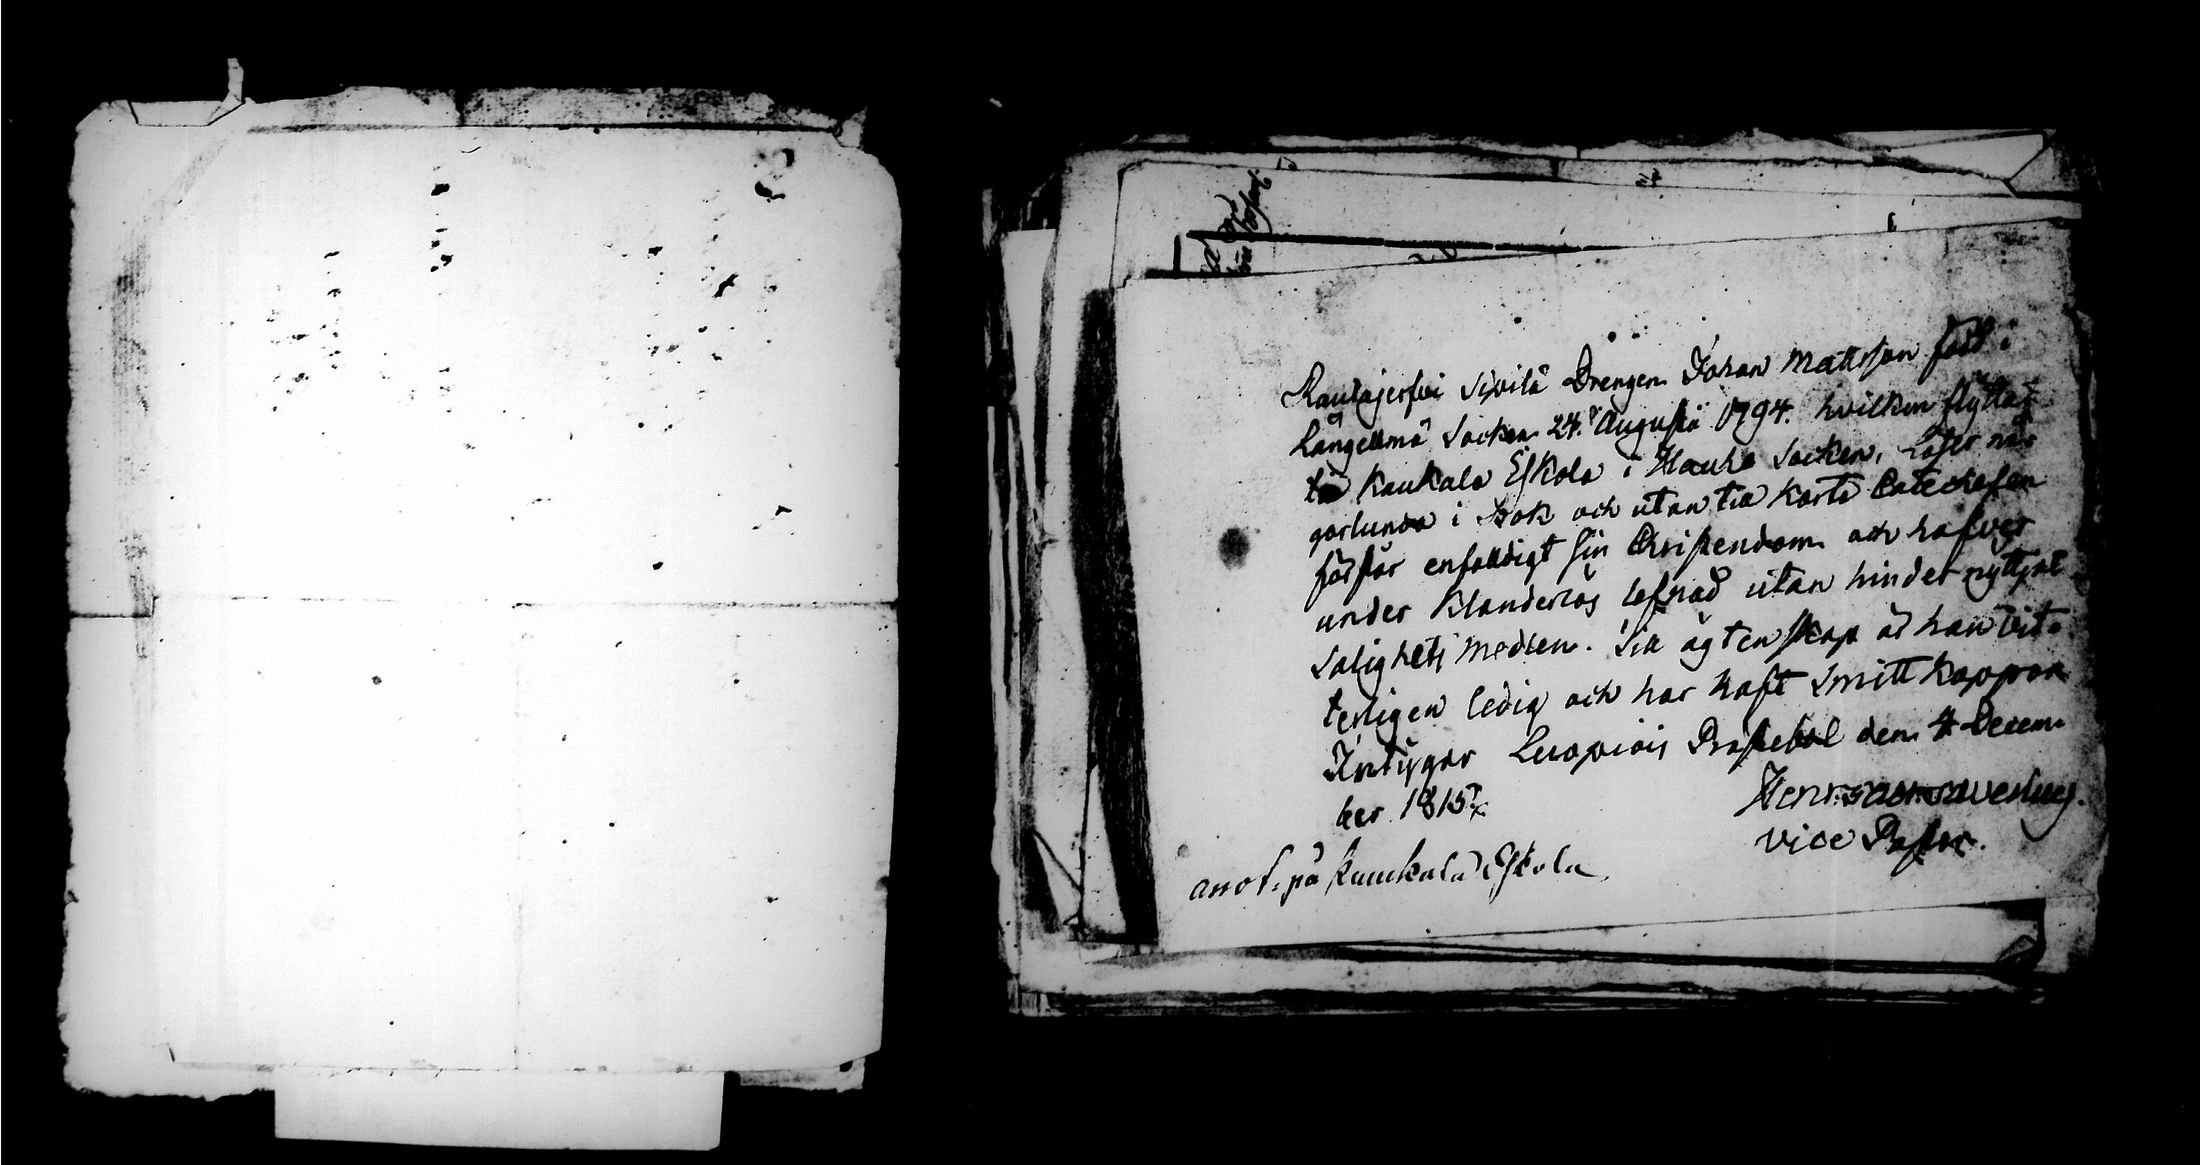 Rautajerfvi Sipilä Drengen Johan Mattsson född i
Längelmä Socken 24. Augusti 1794. hvilken flyttar
til Kaukala Eskola i Hauho Socken, Läser når
gorlunda i Bok och utan til Korta Catechesen
förstår enfaldigt sin Christendom och hafver
under klanderlös lefnad utan hinder nyttjat
Salighets medlen. Til ägtenskap är han vit-
terligen ledig och har haft Smitt Koppor
Intygar Luopiois Prästebol den 4 Decem-
ber 1815
Henr:
vice Pastor.
anot. på Kaukala Eskola